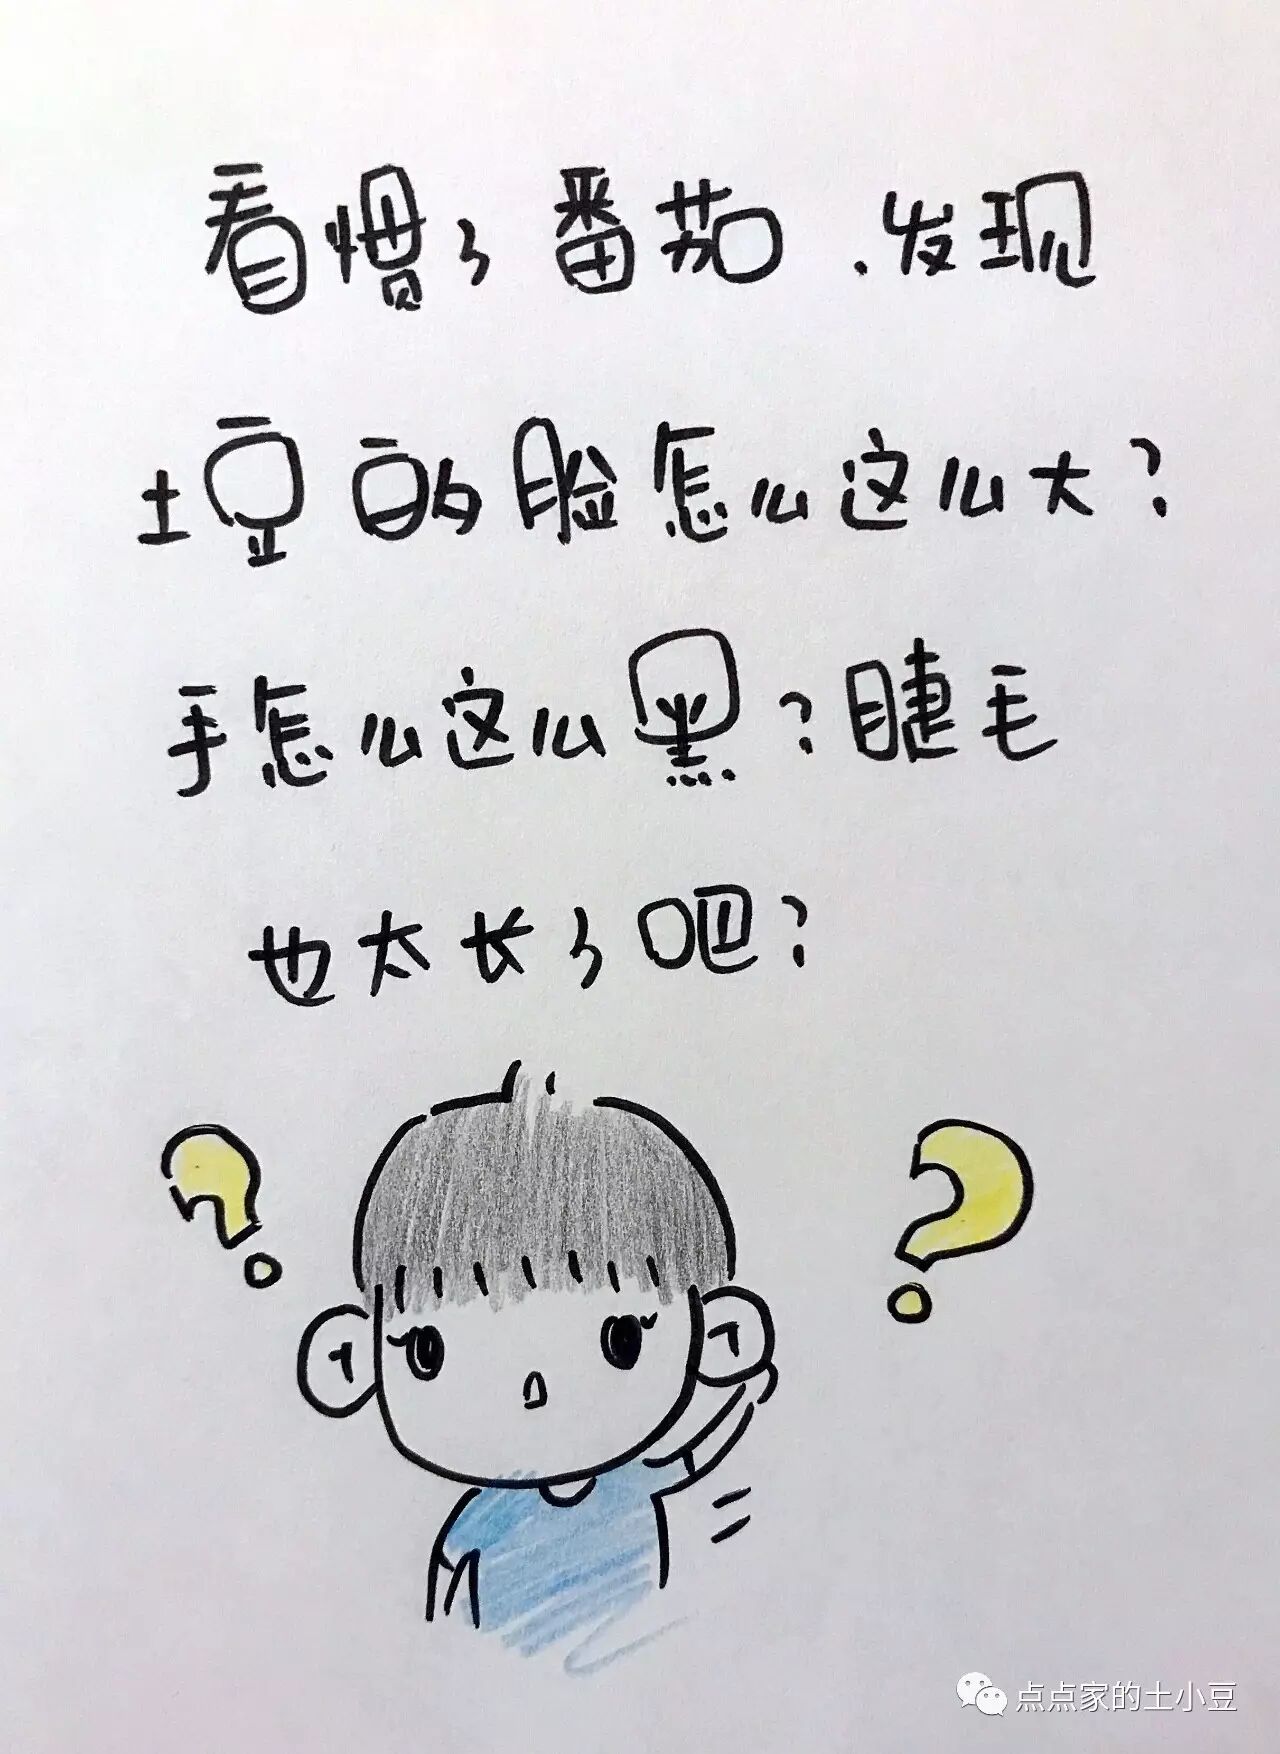 看惯了番茄.发现
土豆的脸怎么这么大?
手怎么这么黑?睫毛
也太长了吧?
点点家的土小豆